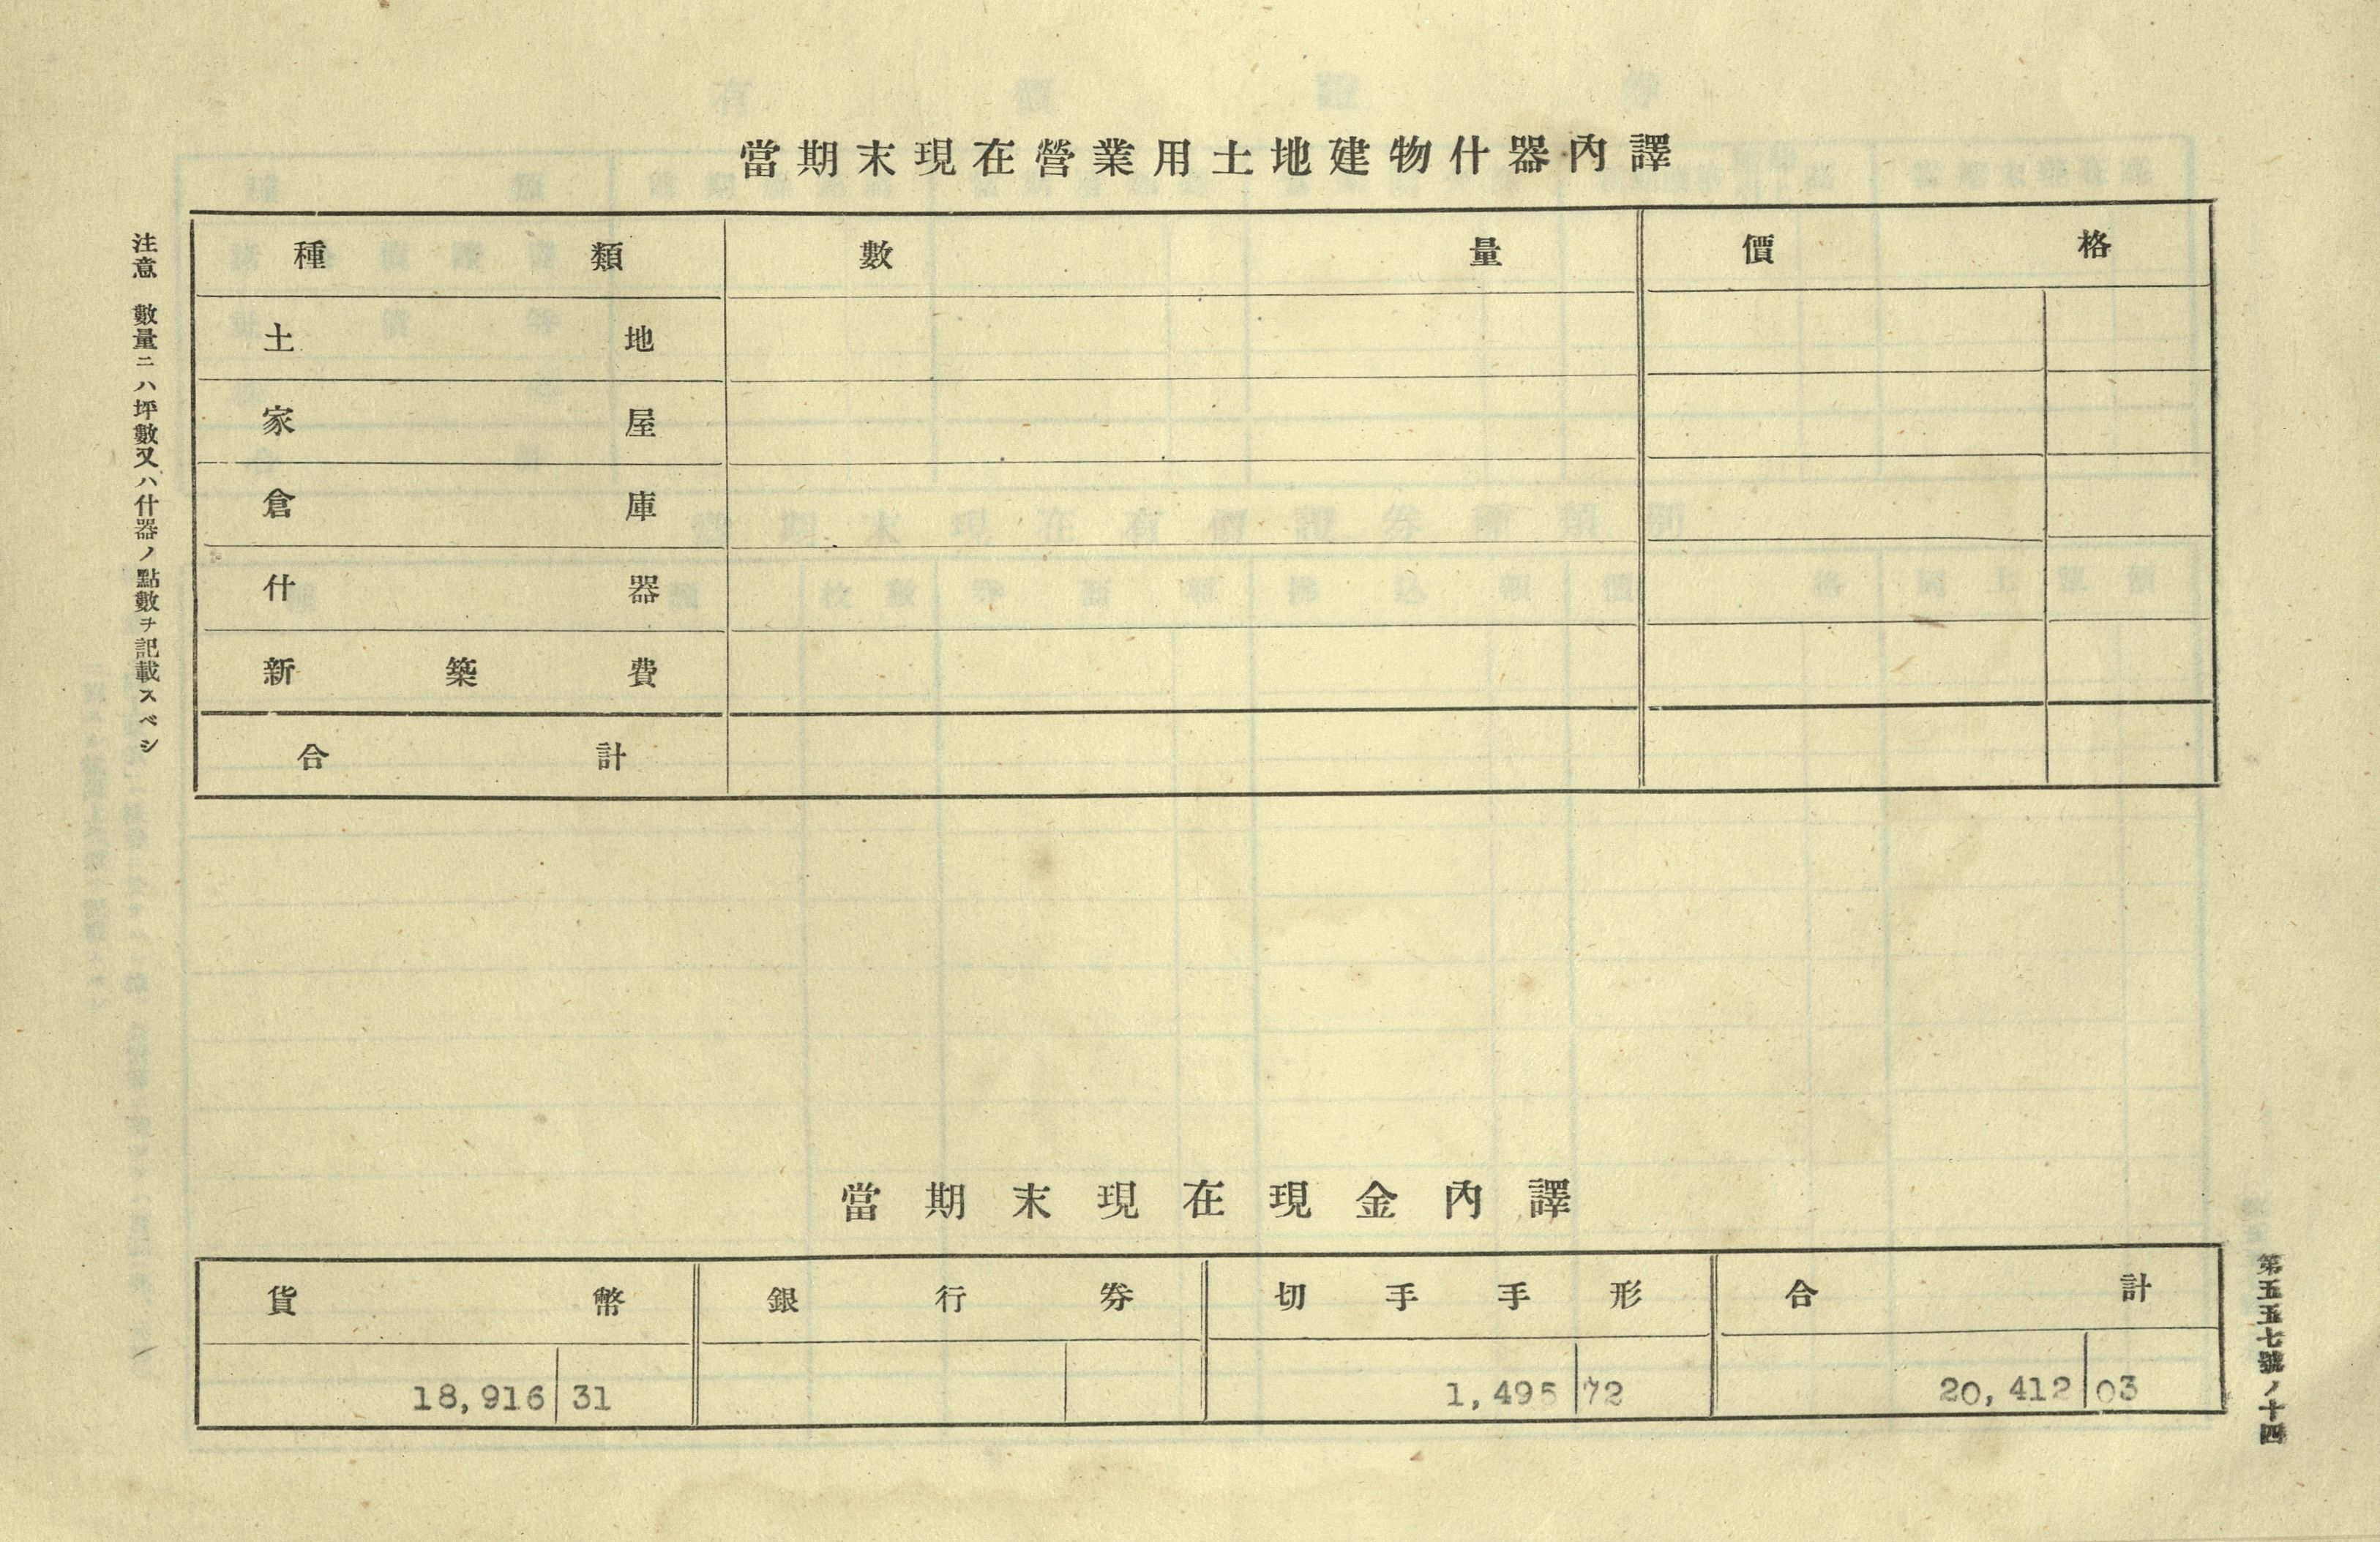 當期末現在營業用土地建物什器內譯
種類 數量 價格
土地
家屋
倉庫
什器
新築費
合計
注意 數量ニハ坪數又ハ什器ノ點數ヲ記載スベシ
當期末現在現金內譯
貨幣 銀行券 切手手形 合計
18,916 31 1,495 72 20,412 03
第五五七號ノ十四